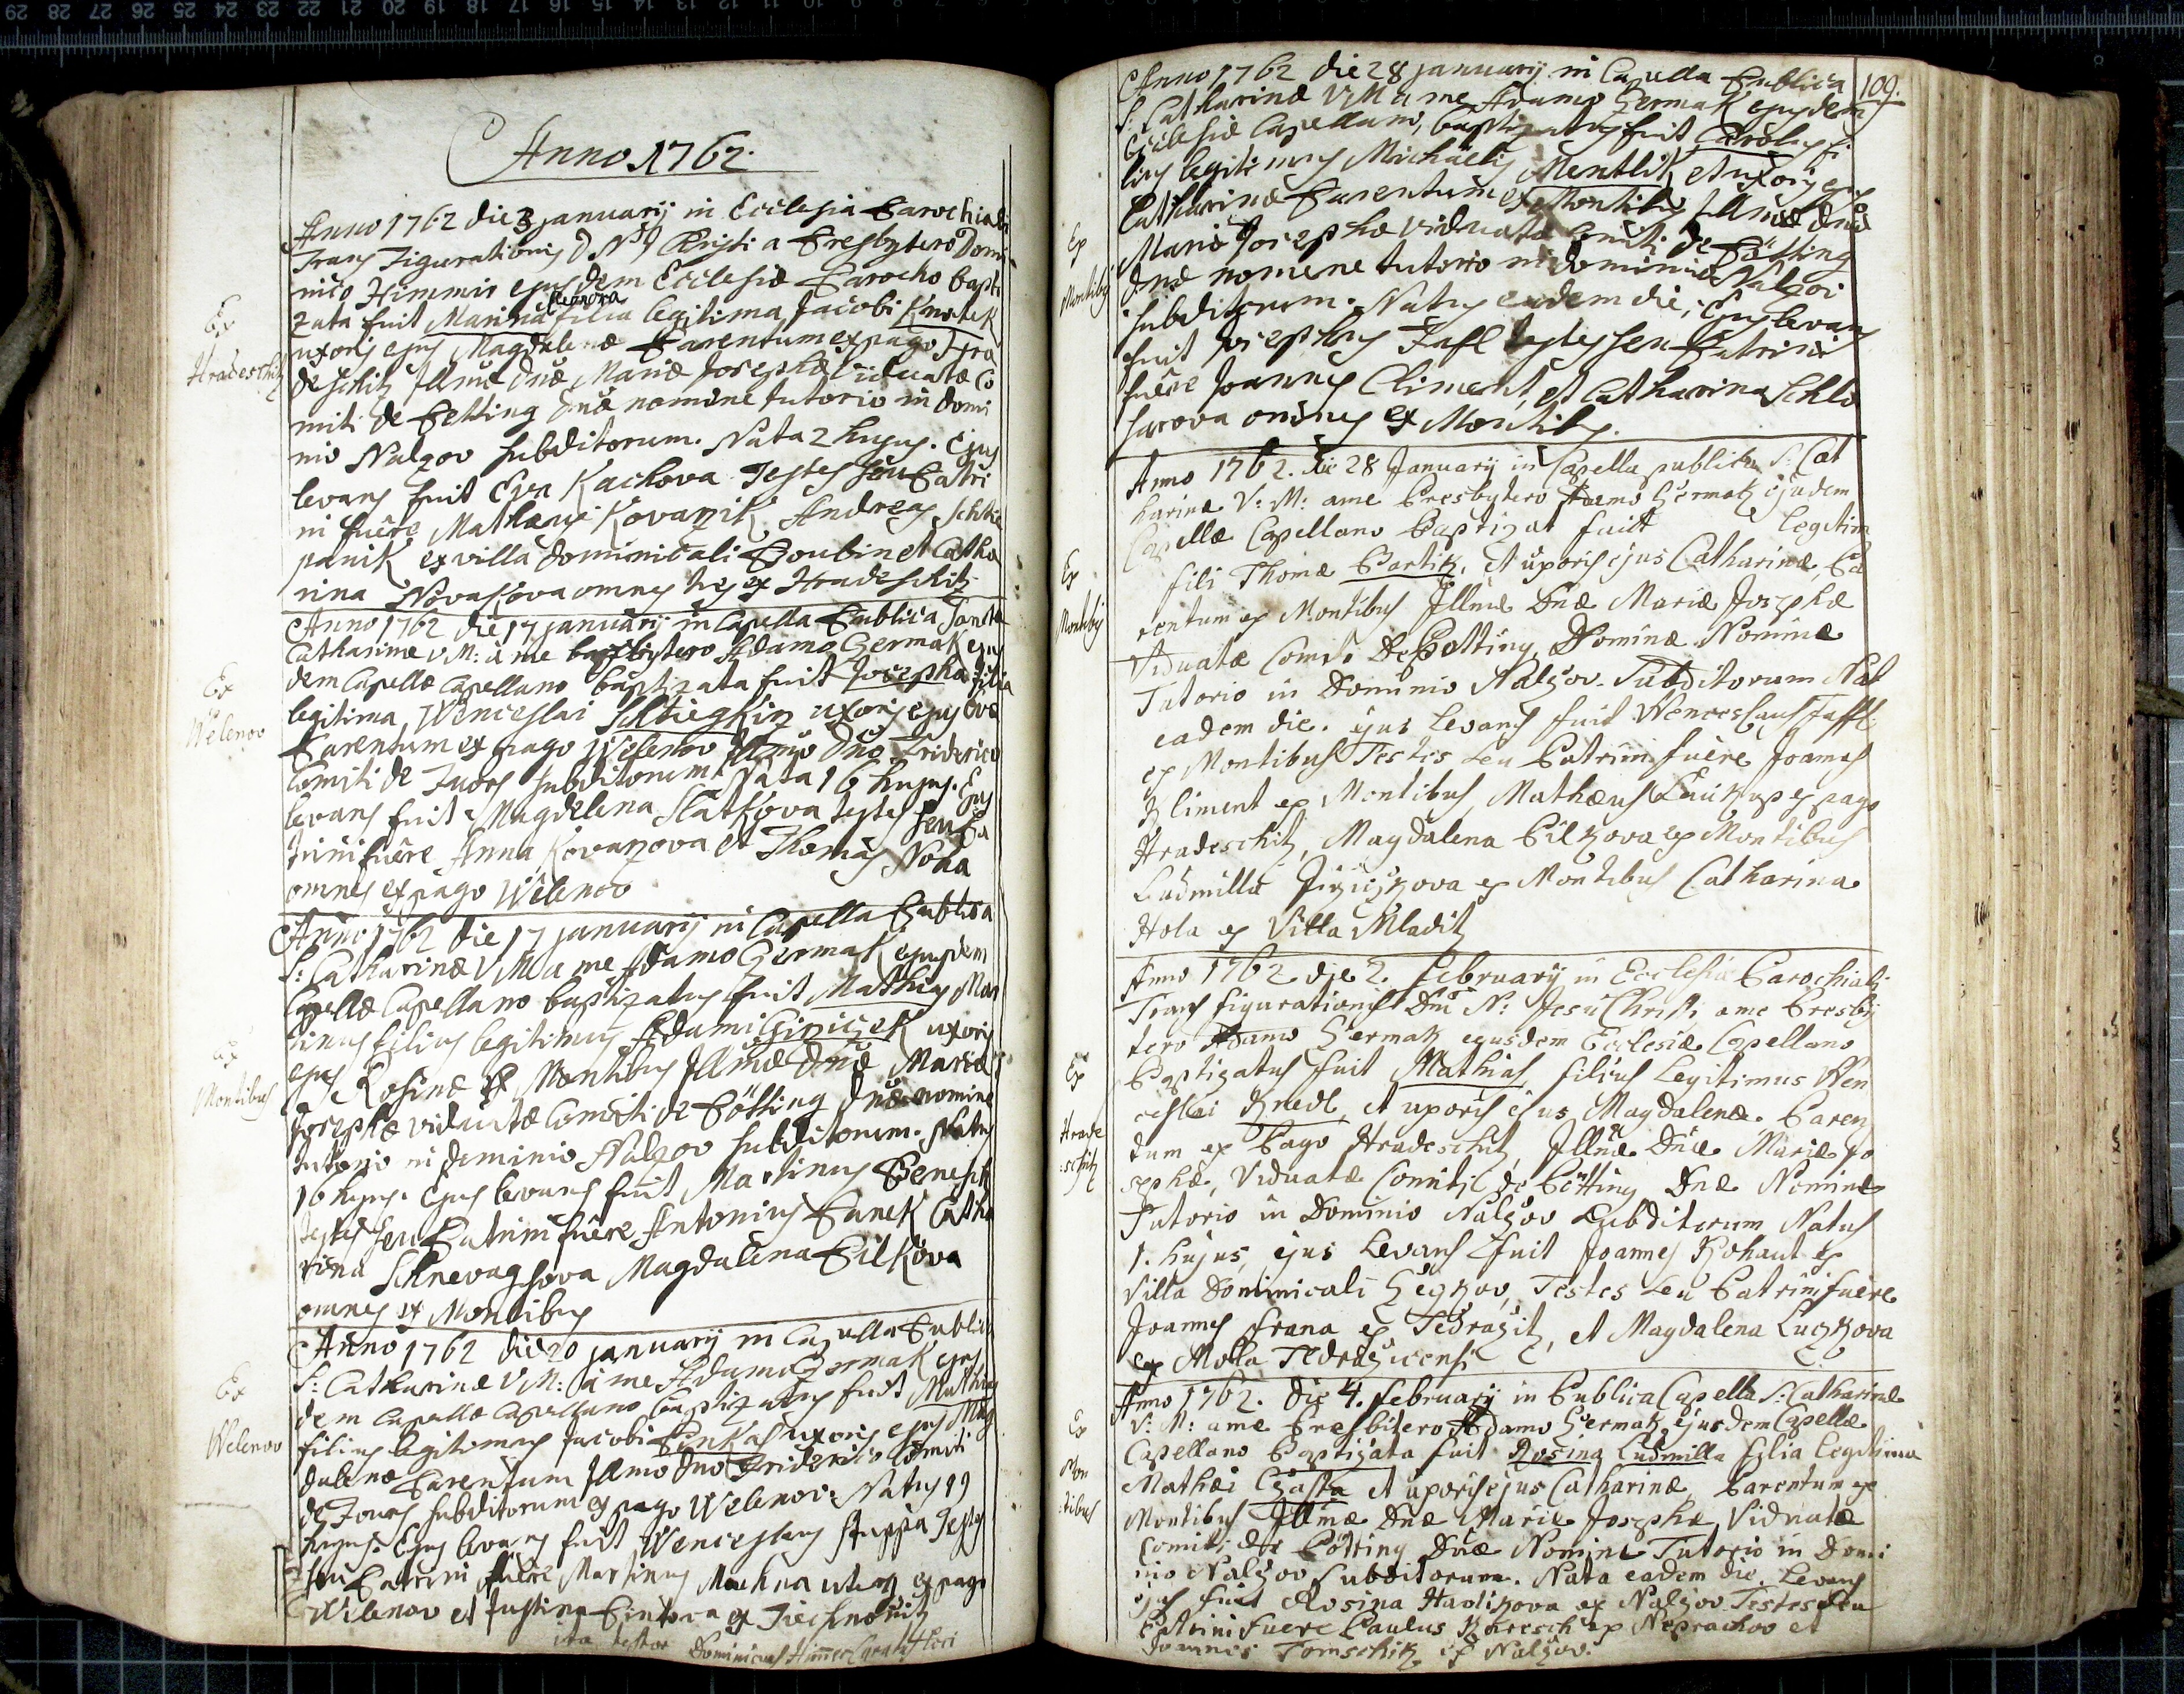 Anno 1762.
Anno 1762 die 3 januarij in Ecclesia Parochiali
Trans Figurationis D N J Christi a Presbytero Domi
nico Himmer ejusdem Ecclesiæ Parocho bapti
zata fuit Marina Eleonora filia legitima Jacobi Knotek
uxoris ejus Magdalenæ Parentum ex pago Hra
deschitz Illmæ Dnæ Mariæ Josephæ Viduatæ Co
miti de Petting Dnæ nomine tutorio in domi
nio Nalzov subditorum. Nata 2 hujus. Ejus
levans fuit Eva Kachova Testes seu Patri
ni fuêre Mathæus Kovarzik Andreas
panik ex villa dominicali Boubin et Catha
rina Novakova omnes tres ex Hradeschitz
Ex
Hradeschitz
Anno 1762 die 17 januarij in Capella Publica Sanctæ
Catharinæ V M: à me Presbytero Adamo Czermak ejus
dem Capellæ Capellano baptizata fuit Josepha filia
legitima, Wenceslai uxoris ejus Evæ
Parentum ex pago Welenov Illmo Dno Friderico
Comiti de subditorum. Nata 16 hujus. Ejus
levans fuit Magdalena Slatkova testes seu Pa
trini fuêre Anna Kovarzova et Thomas Noha
omnes ex pago Welenov
Ex
Welenov
Anno 1762 die 17 januarij in Capella Publica
S: Catharinæ V M a me Adamo Czermak ejusdem
Capellæ Capellano baptizatus fuit Mathias Mar
tinus filius legitimus Adami Girziczek uxoris
ejus Rosinæ ex Montibus Illmæ Dnæ Mariæ
Josephæ viduatæ Comiti de Pötting Dnæ nomine
tutorio in dominio Nalzov subditorum. Natus
16 hujus. Ejus levans fuit Martinus Benesch
testes seu Patrini fuêre Antonius Panek Catha
rina Magdalena Pilkova
omnes ex Montibus
Ex
Montibus
Anno 1762 die 20 januarij in Capella Publica
S: Catharinæ V M: à me Adamo Czermak ejus
dem Capellæ Capellano baptizatus fuit Mathias
filius legitimus Jacobi Pinkas uxoris ejus Mag
dalenæ Parentum Illmo Dno Friderico Comiti
de subditorum ex pago Welenov. Natus 19
hujus. Ejus levans fuit Wenceslaus Testes
seu Patrini fuêre Martinus Machna uterq ex pago
Welenov et Justina ex
Ex
Welenov
ita testor Dominicus Himmer
109.
Anno 1762 die 28 januarij in Capella Publica
S: Catharinæ V M a me Adamo Czermak ejusdem
Ecclesiæ Capellano, baptizatus fuit Carolus fi
lius legitimus Michaelis Mentlik et uxoris ejus
Catharinæ Parentum ex Montibus Illmæ Dnæ
Mariæ Josephæ viduatæ Comiti de Pötting
Dnæ nomine tutorio in dominio Nalzov
subditorum. Natus eadem die, Ejus levans
fuit Josephus Taffl testes seu Patrini
fuêre Joannes Climent, et Catharina Schla
harova omnes ex Montibus.
Ex
Montibus
Anno 1762. die 28 Januarij in Capella publica S: Cat
harinæ V: M: a me Presbytero Adamo Czermak ejusdem
Capellæ Capellano Baptizat fuit Legitim
fili Thomæ Bartik, et uxoris ejus Catharinæ, Pa
rentum ex Montibus Illmæ Dnæ Mariæ Josephæ
Viduatæ Comiti De Potting Dominæ Nomine
Tutorio in Dominio Nalzov Subditorum Nat
eadem die. ejus Levans fuit Wenceslaus Taffl
ex Montibus Testes seu Patrini fuêre Joannes
Kliment ex Montibus, Mathæus ex pago
Hradeschitz, Magdalena Pilkova ex Montibus
Ludmilla ex Montibus Catharina
Hola ex Villa Mladitz
Ex
Montibus
Anno 1762 die 2. Februarij in Ecclesia Parochiali
Trans figurationis Dni N: Jesu Christi a me Presby
tero Adamo Czermak ejusdem Ecclesiæ Capellano
Baptizatus fuit Mathias, filius Legitimus Wen
ceslai Knedl, et uxoris ejus Magdalenæ. Paren
tum ex Pago Hradeschitz, Illmæ Dnæ Mariæ Jo
sephæ, Viduatæ Comiti de Pötting Dnæ Nomine
Tutorio in Dominio Nalzov Subditorum Natus
1. hujus, ejus Levans fuit Joannes Kohaut ex
Villa Dominicali, Testes seu Patrini fuêre
Joannes Frana ex Tedrazitz, et Magdalena Luczkova
ex Molla Tedrazicensi
Ex
Hrade
schitz
Anno 1762. die 4. Februarij in Publica Capella S: Catharinæ
V: M: a me Presbitero Adamo Czermak, ejusdem Capellæ
Capellano Baptizata fuit Rosina Ludmilla filia Legitima
Mathæi Czasta et uxoris ejus Catharinæ, Parentum ex
Montibus Illmæ Dnæ Mariæ Josephæ, Viduatæ
Comiti de Pötting Dnæ Nomine Tutorio in Domi
nio Nalzov Subditorum. Nata eadem die. Levans
ejus fuit Rosina Havlikova ex Nalzov Testes seu
Patrini fuere Paulus Karesch ex Neprachov et
Joannes Tomschik ex Nalzov.
Ex
Mon
tibus